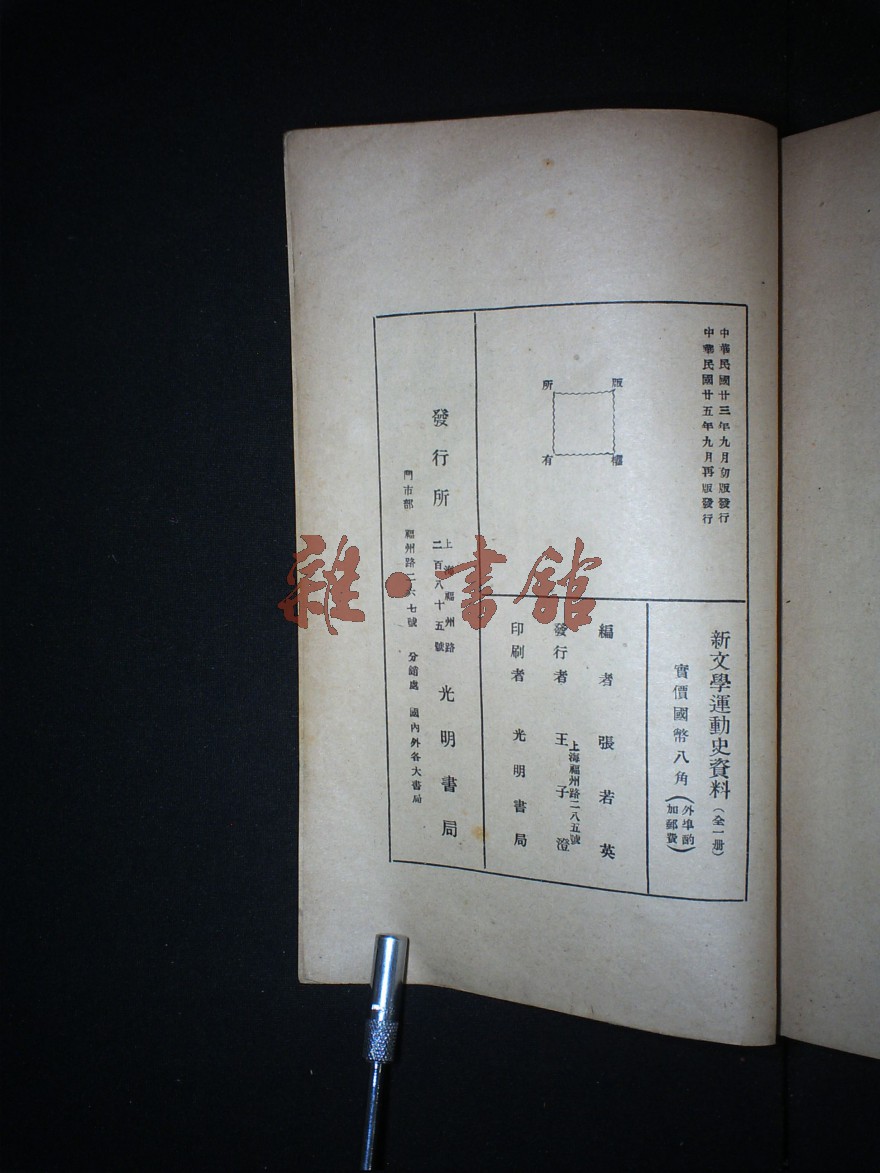 中華民國廿三年九月初版發行
中華民國廿五年九月再版發行
版權所有
新文學運動史資料（全一册）
實價國幣八角（外埠酌加郵費）
編者 張若英
發行者 王子澄
上海福州路二八五號
印刷者 光明書局
發行所 上海福州路二百八十五號 光明書局
門市部 福州路二六七號 分銷處 國內外各大書局
雜·書館